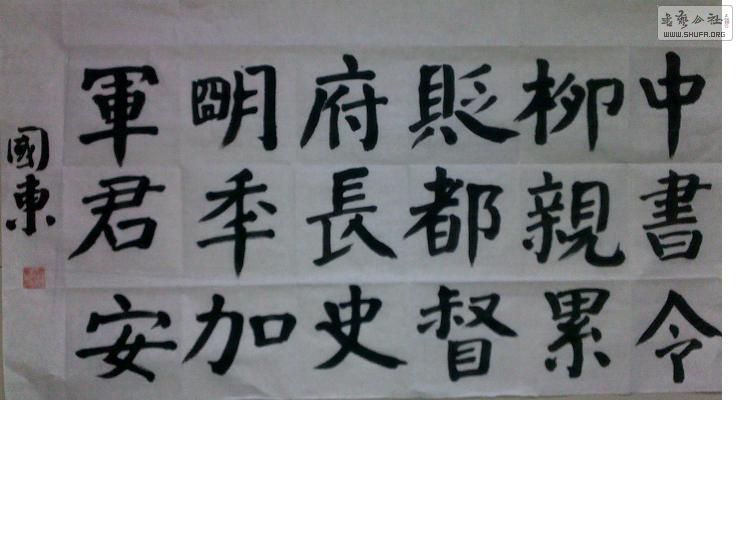 中書令
柳親累
貶都督
府長史
明年加
軍君安
國東
書藝公社
WWW.SHUFA.ORG